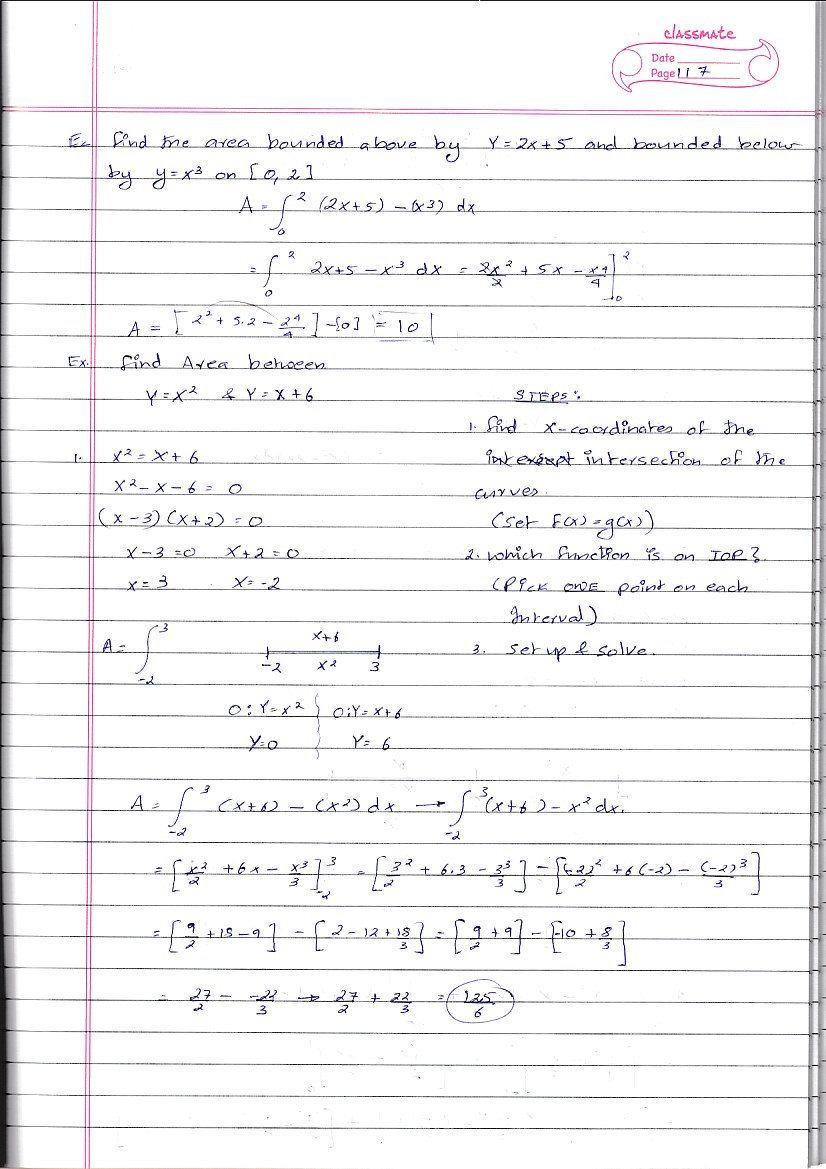 classmate
Date
Page 117
Ex. find the area bounded above by Y = 2x + 5 and bounded below
by y = x³ on [0, 2]
A = ∫₀² (2x+5) - (x³) dx
= ∫₀² 2x+5 - x³ dx = 2x²/2 + 5x - x⁴/4 ]₀²
A = [2² + 5.2 - 2⁴/4] - [0] = 10
Ex. find Area between
Y = x² & Y = x + 6
STEPS:
1. find x-coordinates of the
intersection of the
curves.
(set f(x) = g(x))
2. which function is on TOP?
(Pick ONE point on each
Interval)
3. set up & solve.
1. x² = x + 6
x² - x - 6 = 0
(x-3)(x+2) = 0
x-3 = 0 x+2 = 0
x = 3 x = -2
A = ∫₋₂³
x+6
-2 x² 3
0: Y = x² 0: Y = x+6
Y = 0 Y = 6
A = ∫₋₂³ (x+6) - (x²) dx → ∫₋₂³ (x+6) - x² dx.
= [x²/2 + 6x - x³/3]₋₂³ = [3²/2 + 6.3 - 3³/3] - [(-2)²/2 + 6(-2) - (-2)³/3]
= [9/2 + 18 - 9] - [2 - 12 + 18/3] = [9/2 + 9] - [-10 + 8/3]
= 27/2 - -22/3 → 27/2 + 22/3 = 125/6